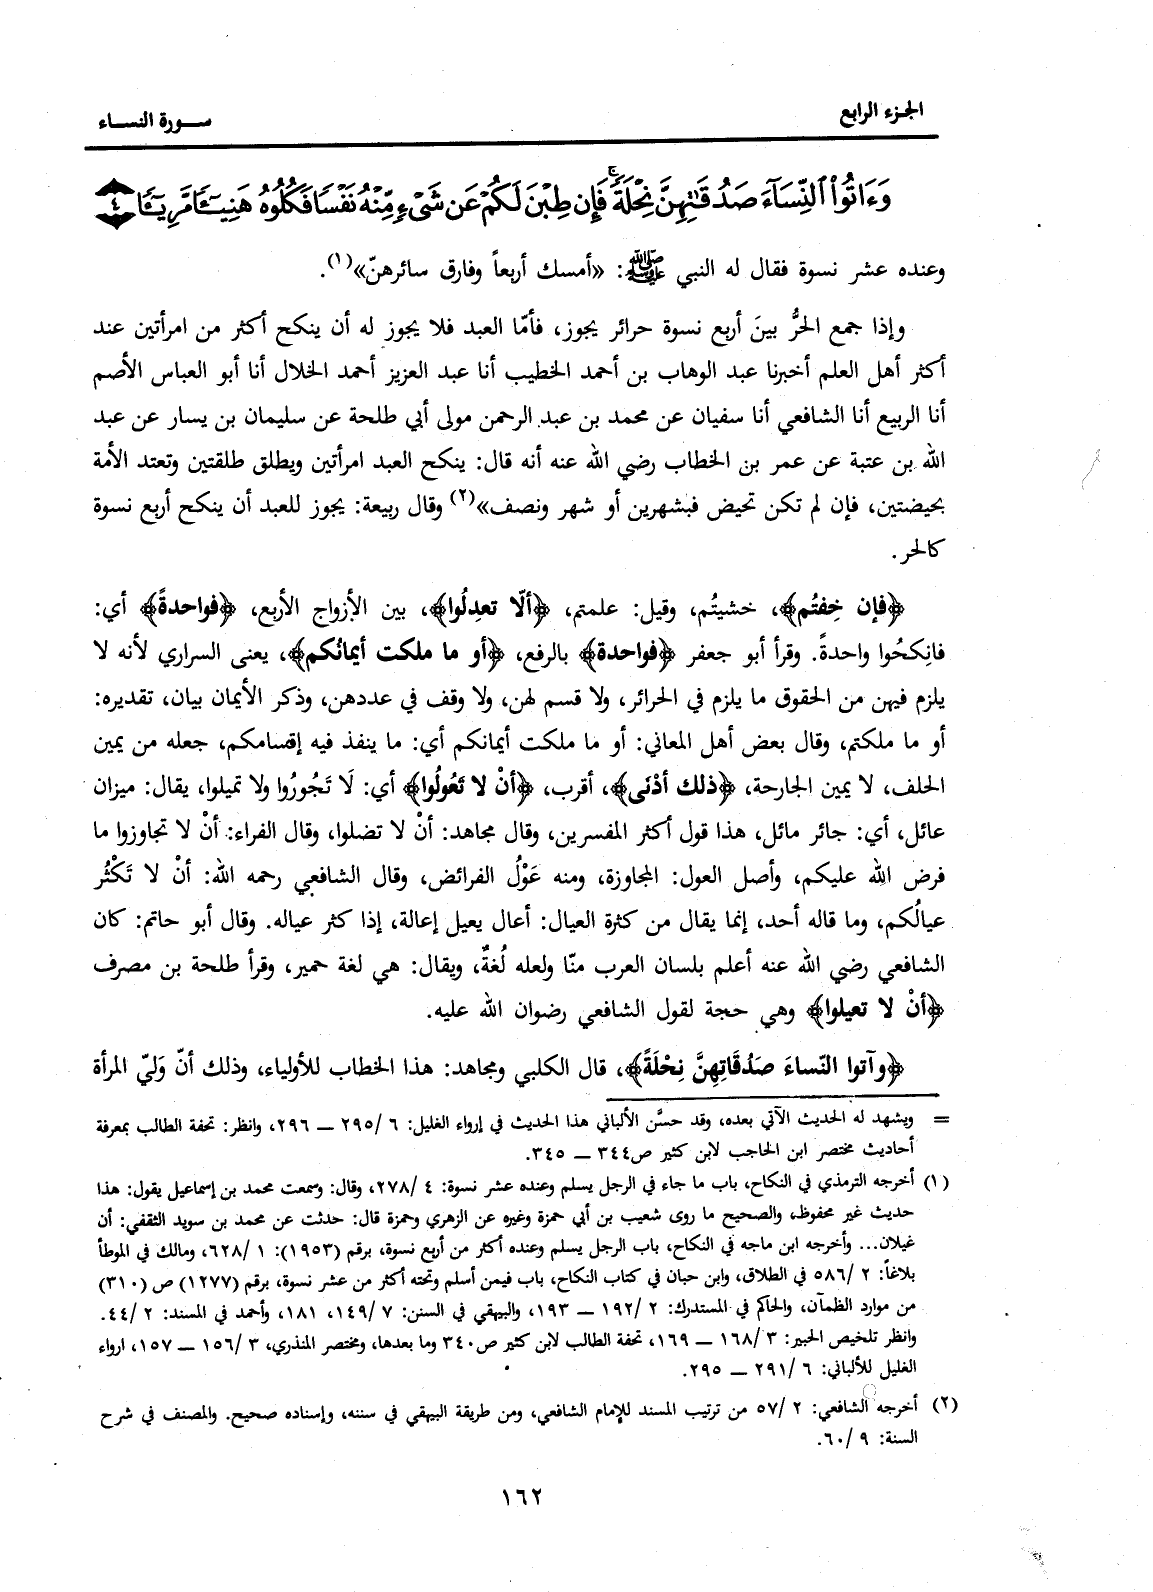 الجزء الرابع
سورة النساء
وَءَاتُوا۟ ٱلنِّسَآءَ صَدُقَـٰتِهِنَّ نِحْلَةً ۚ فَإِن طِبْنَ لَكُمْ عَن شَىْءٍ مِّنْهُ نَفْسًا فَكُلُوهُ هَنِيٓـًٔا مَّرِيٓـًٔا ٤
وعنده عشر نسوة فقال له النبي ﷺ: «أمسك أربعاً وفارق سائرهنّ»(١).
وإذا جمع الحرُّ بينَ أربع نسوة حرائر يجوز، فأمّا العبد فلا يجوز له أن ينكح أكثر من امرأتين عند
أكثر أهل العلم أخبرنا عبد الوهاب بن أحمد الخطيب أنا عبد العزيز أحمد الخلال أنا أبو العباس الأصم
أنا الربيع أنا الشافعي أنا سفيان عن محمد بن عبد الرحمن مولى أبي طلحة عن سليمان بن يسار عن عبد
الله بن عتبة عن عمر بن الخطاب رضي الله عنه أنه قال: ينكح العبد امرأتين ويطلق طلقتين وتعتد الأمة
بحيضتين، فإن لم تكن تحيض فبشهرين أو شهر ونصف»(٢) وقال ربيعة: يجوز للعبد أن ينكح أربع نسوة
كالحر.
﴿فإن خِفتُم﴾، خشيتُم، وقيل: علمتم، ﴿ألّا تعدِلُوا﴾، بين الأزواج الأربع، ﴿فواحدةً﴾ أي:
فانِكحُوا واحدةً. وقرأ أبو جعفر ﴿فواحدة﴾ بالرفع، ﴿أو ما ملكت أيمانُكم﴾، يعنى السراري لأنه لا
يلزم فيهن من الحقوق ما يلزم في الحرائر، ولا قسم لهن، ولا وقف في عددهن، وذكر الأيمان بيان، تقديره:
أو ما ملكتم، وقال بعض أهل المعاني: أو ما ملكت أيمانكم أي: ما ينفذ فيه إقسامكم، جعله من يمين
الحلف، لا يمين الجارحة، ﴿ذلك أدْنَى﴾، أقرب، ﴿أنْ لا تَعُولُوا﴾ أي: لَا تَجُورُوا ولا تميلوا، يقال: ميزان
عائل، أي: جائر مائل، هذا قول أكثر المفسرين، وقال مجاهد: أنْ لا تضلوا، وقال الفراء: أنْ لا تجاوزوا ما
فرض الله عليكم، وأصل العول: المجاوزة، ومنه عَوْلُ الفرائض، وقال الشافعي رحمه الله: أنْ لا تَكْثُر
عيالُكم، وما قاله أحد، إنما يقال من كثرة العيال: أعال يعيل إعالة، إذا كثر عياله. وقال أبو حاتم: كان
الشافعي رضي الله عنه أعلم بلسان العرب منّا ولعله لُغةٌ، ويقال: هي لغة حمير، وقرأ طلحة بن مصرف
﴿أنْ لا تعيلوا﴾ وهي حجة لقول الشافعي رضوان الله عليه.
﴿وآتوا النّساءَ صَدُقَاتِهِنَّ نِحْلَةً﴾، قال الكلبي ومجاهد: هذا الخطاب للأولياء، وذلك أنّ وَليّ المرأة
= ويشهد له الحديث الآتي بعده، وقد حسَّن الألباني هذا الحديث في إرواء الغليل: ٦ /٢٩٥ ــ ٢٩٦، وانظر: تحفة الطالب بمعرفة
أحاديث مختصر ابن الحاجب لابن كثير ص٣٤٤ ــ ٣٤٥.
(١) أخرجه الترمذي في النكاح، باب ما جاء في الرجل يسلم وعنده عشر نسوة: ٤ /٢٧٨، وقال: وسمعت محمد بن إسماعيل يقول: هذا
حديث غير محفوظ، والصحيح ما روى شعيب بن أبي حمزة وغيره عن الزهري وحمزة قال: حدثت عن محمد بن سويد الثقفي: أن
غيلان... وأخرجه ابن ماجه في النكاح، باب الرجل يسلم وعنده أكثر من أربع نسوة، برقم (١٩٥٣): ١ /٦٢٨، ومالك في الموطأ
بلاغاً: ٢ /٥٨٦ في الطلاق، وابن حبان في كتاب النكاح، باب فيمن أسلم وتحته أكثر من عشر نسوة، برقم (١٢٧٧) ص (٣١٠)
من موارد الظمآن، والحاكم في المستدرك: ٢ /١٩٢ ــ ١٩٣، والبيهقي في السنن: ٧ /١٤٩، ١٨١، وأحمد في المسند: ٢ /٤٤.
وانظر تلخيص الحبير: ٣ /١٦٨ ــ ١٦٩، تحفة الطالب لابن كثير ص٣٤٠ وما بعدها، ومختصر المنذري، ٣ /١٥٦ ــ ١٥٧، ارواء
الغليل للألباني: ٦ /٢٩١ ــ ٢٩٥.
(٢) أخرجه الشافعي: ٢ /٥٧ من ترتيب المسند للإمام الشافعي، ومن طريقة البيهقي في سننه، وإسناده صحيح. والمصنف في شرح
السنة: ٩ /٦٠.
١٦٢